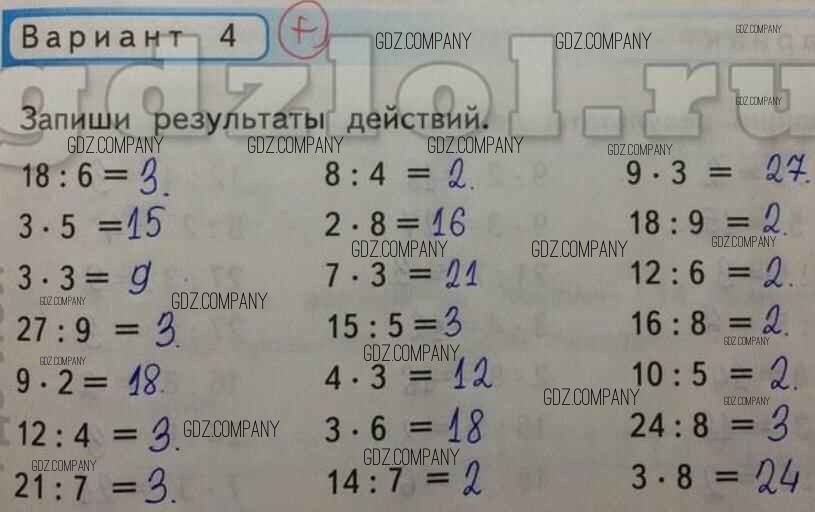 Вариант 4 +
GDZ.COMPANY GDZ.COMPANY GDZ.COMPANY
gdzlol.ru
GDZ.COMPANY
Запиши результаты действий.
GDZ.COMPANY GDZ.COMPANY GDZ.COMPANY GDZ.COMPANY
18 : 6 = 3. 8 : 4 = 2. 9 · 3 = 27.
3 · 5 = 15 2 · 8 = 16 18 : 9 = 2.
GDZ.COMPANY GDZ.COMPANY GDZ.COMPANY
3 · 3 = 9 7 · 3 = 21 12 : 6 = 2.
GDZ.COMPANY GDZ.COMPANY
27 : 9 = 3. 15 : 5 = 3 16 : 8 = 2.
GDZ.COMPANY GDZ.COMPANY GDZ.COMPANY
9 · 2 = 18. 4 · 3 = 12 10 : 5 = 2.
GDZ.COMPANY GDZ.COMPANY
12 : 4 = 3. GDZ.COMPANY 3 · 6 = 18 24 : 8 = 3
GDZ.COMPANY GDZ.COMPANY
21 : 7 = 3. 14 : 7 = 2 3 · 8 = 24